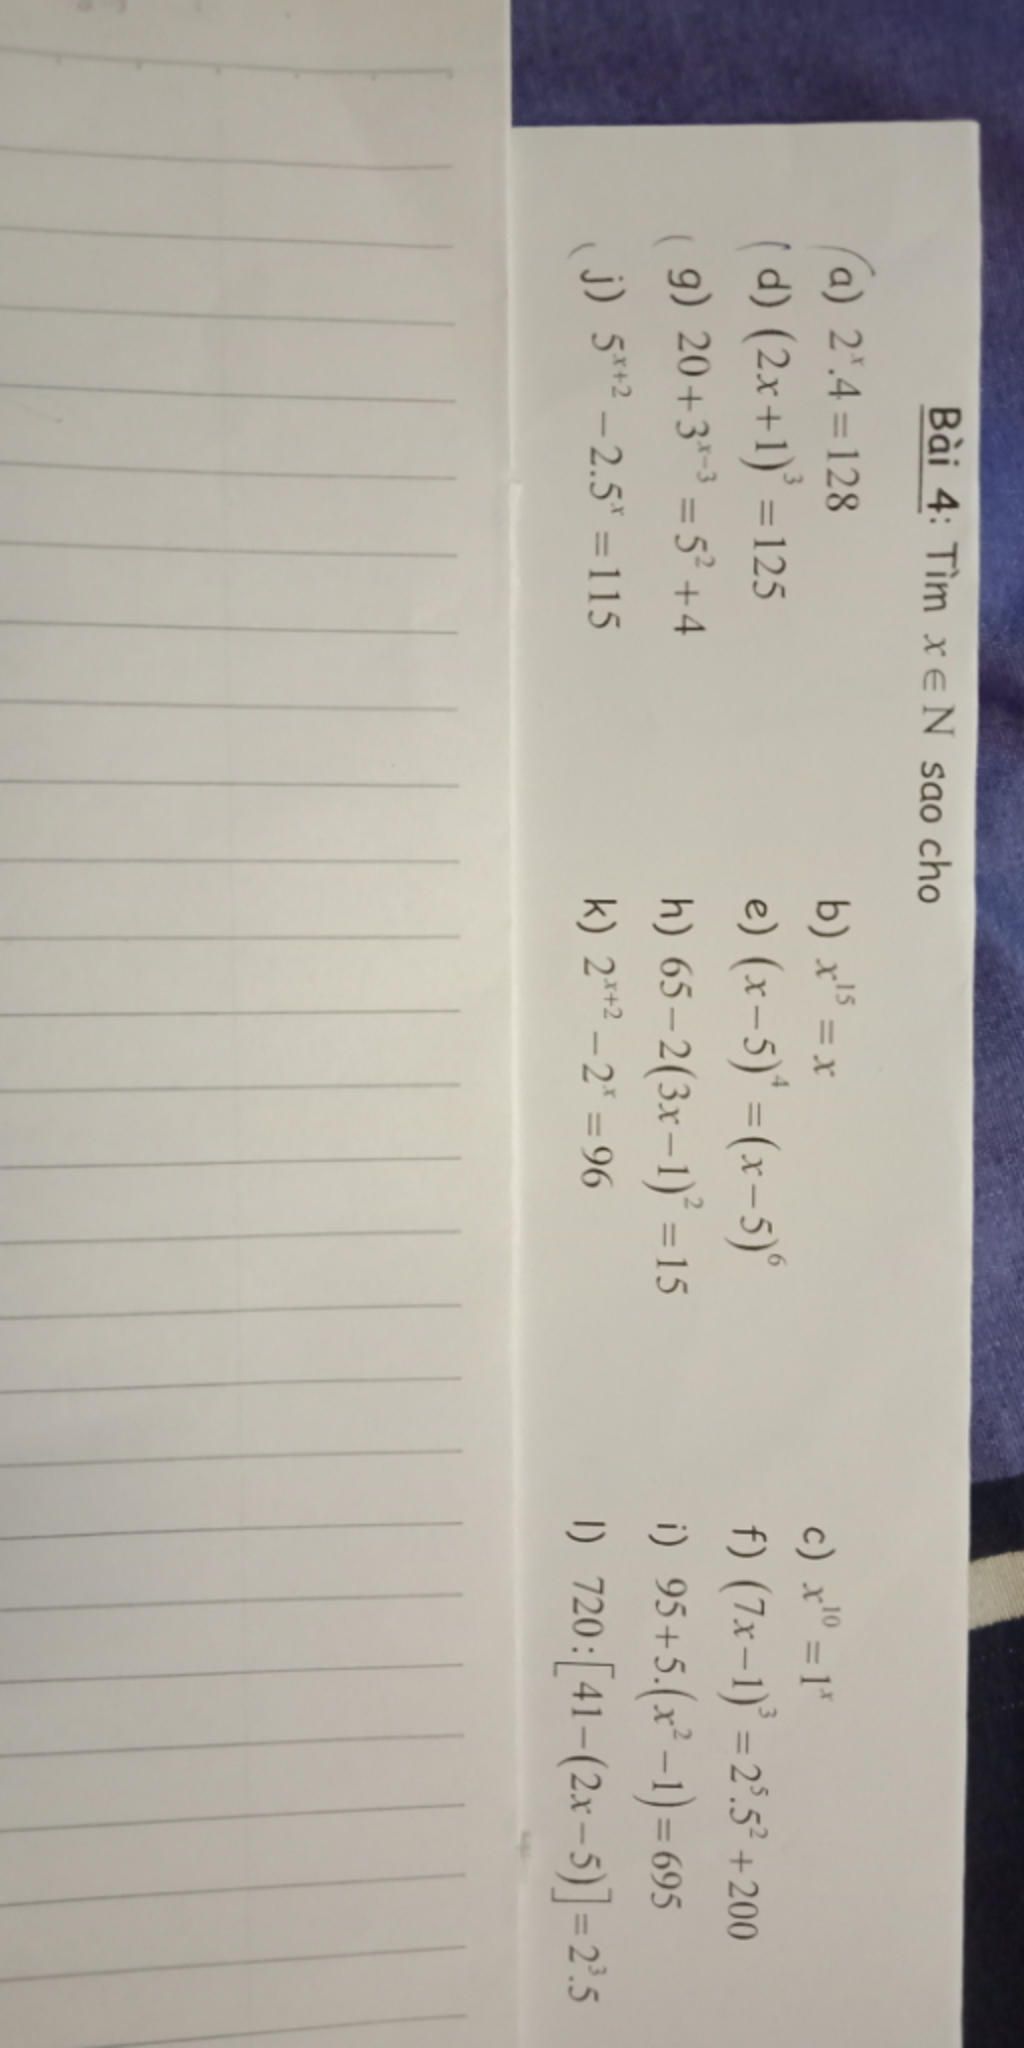 Bài 4: Tìm x ∈ N sao cho
a) 2ˣ.4 = 128 b) x¹⁵ = x c) x¹⁰ = 1ˣ
d) (2x+1)³ = 125 e) (x−5)⁴ = (x−5)⁶ f) (7x−1)³ = 2⁵.5² + 200
g) 20 + 3ˣ⁻³ = 5² + 4 h) 65 − 2(3x−1)² = 15 i) 95 + 5.(x² −1) = 695
j) 5ˣ⁺² − 2.5ˣ = 115 k) 2ˣ⁺² − 2ˣ = 96 l) 720:[41−(2x−5)] = 2³.5